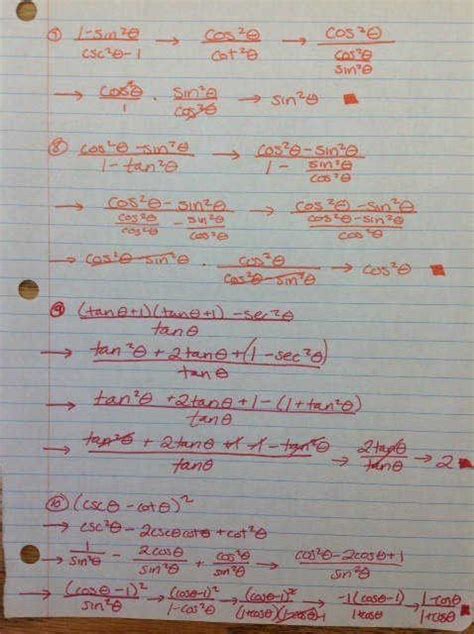 ⑦ (1-sin²θ)/(csc²θ-1) → cos²θ/cot²θ → cos²θ/(cos²θ/sin²θ)
→ cos²θ/1 · sin²θ/cos²θ → sin²θ ■
⑧ (cos²θ-sin²θ)/(1-tan²θ) → (cos²θ-sin²θ)/(1 - sin²θ/cos²θ)
→ (cos²θ-sin²θ)/(cos²θ/cos²θ - sin²θ/cos²θ) → (cos²θ-sin²θ)/((cos²θ-sin²θ)/cos²θ)
→ cos²θ-sin²θ · cos²θ/(cos²θ-sin²θ) → cos²θ ■
⑨ ((tanθ+1)(tanθ+1) -sec²θ)/tanθ
→ (tan²θ + 2tanθ +(1-sec²θ))/tanθ
→ (tan²θ +2tanθ +1-(1+tan²θ))/tanθ
→ (tan²θ + 2tanθ +1 -1 -tan²θ)/tanθ → 2tanθ/tanθ → 2 ■
⑩ (cscθ - cotθ)²
→ csc²θ - 2cscθcotθ +cot²θ
→ 1/sin²θ - 2cosθ/sin²θ + cos²θ/sin²θ → (cos²θ-2cosθ+1)/sin²θ
→ (cosθ-1)²/sin²θ → (cosθ-1)²/(1-cos²θ) → (cosθ-1)²/((1+cosθ)(1-cosθ)·-1) → -1(cosθ-1)/(1+cosθ) → (1-cosθ)/(1+cosθ) ■